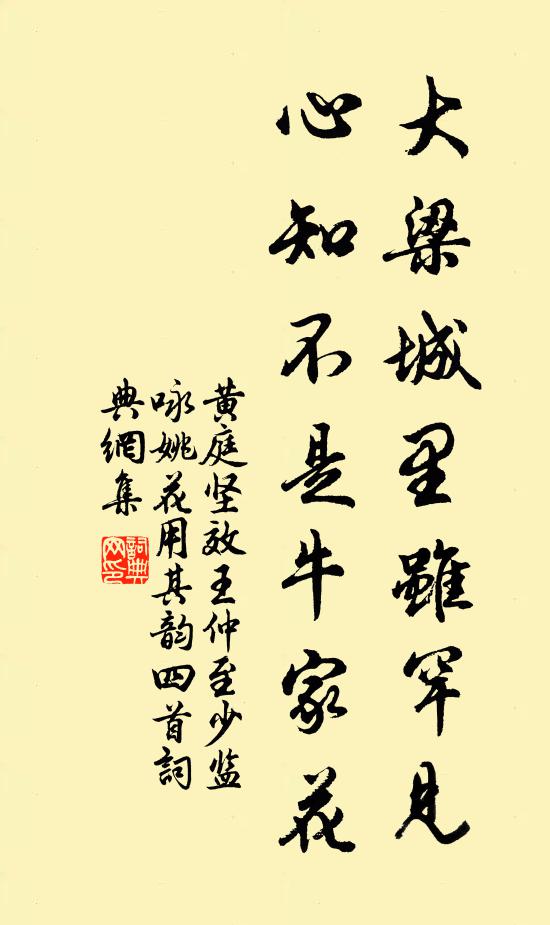 大梁城里雖罕見
心知不是牛家花
黄庭坚效王仲至少监
咏姚花用其韵四首詞
典網集
詞典网印